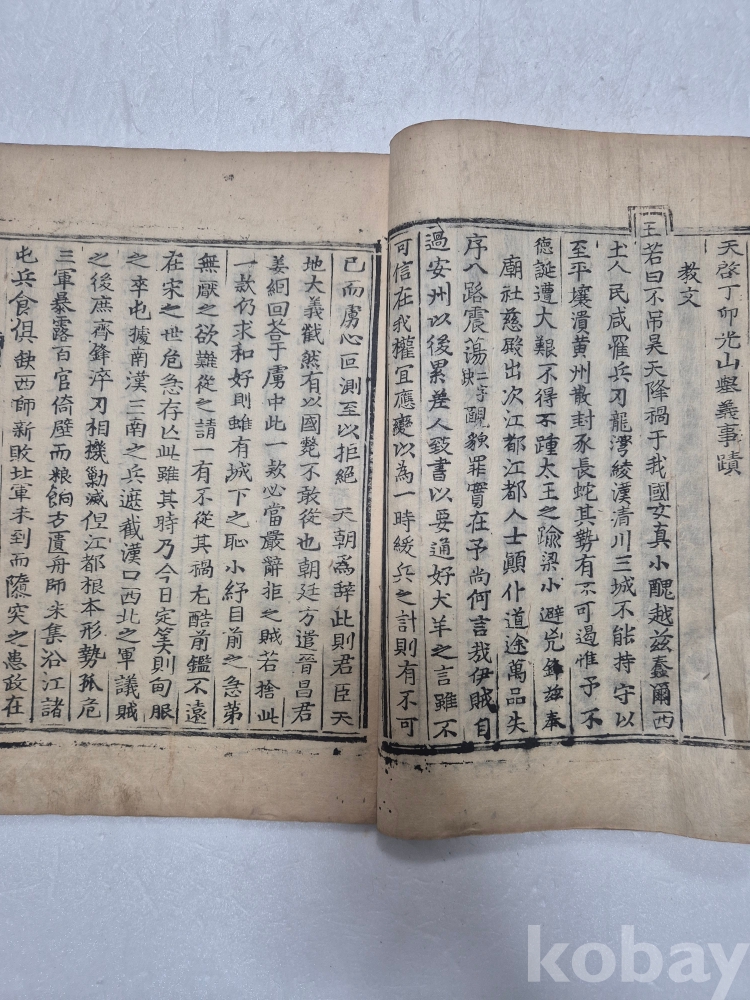 天啓丁卯光山擧義事蹟
教文
王若曰不吊昊天降禍于我國女真小醜越玆蠢爾西
土人民咸罹兵刃龍灣綾漢清川三城不能持守以
至平壤潰黄州散封豕長蛇其勢有不可遏惟予不
德誕遭大艱不得不踵太王之踰梁小避兇鋒玆奉
廟社慈殿出次江都江都人士顚仆道途萬品失
序八路震蕩 醜 罪實在予尚何言哉伊賊自
過安州以後累差人致書以要通好犬羊之言雖不
可信在我權宜應變以為一時緩兵之計則有不可
已而虜心叵測至以拒絕 天朝爲辭此則君臣天
地大義截然有以國斃不敢從也朝廷方遣晉昌君
姜絪回荅于虜中此一款必當嚴辭拒之賊若捨此
一款仍求和好則雖有城下之恥小紓目前之急第
無厭之欲難從之請一有不從其禍尤酷前鑑不遠
在宋之世危急存亾此雖其時乃今日定筭則甸服
之卒屯據南漢三南之兵遮截漢口西北之軍議賊
之後庶齊鋒淬刃相機勦滅但江都根本形勢孤危
三軍暴露百官倚壁而粮餉古匱舟師未集沿江諸
屯兵食俱缺西師新敗北軍未到而隳突之患政在
kobay